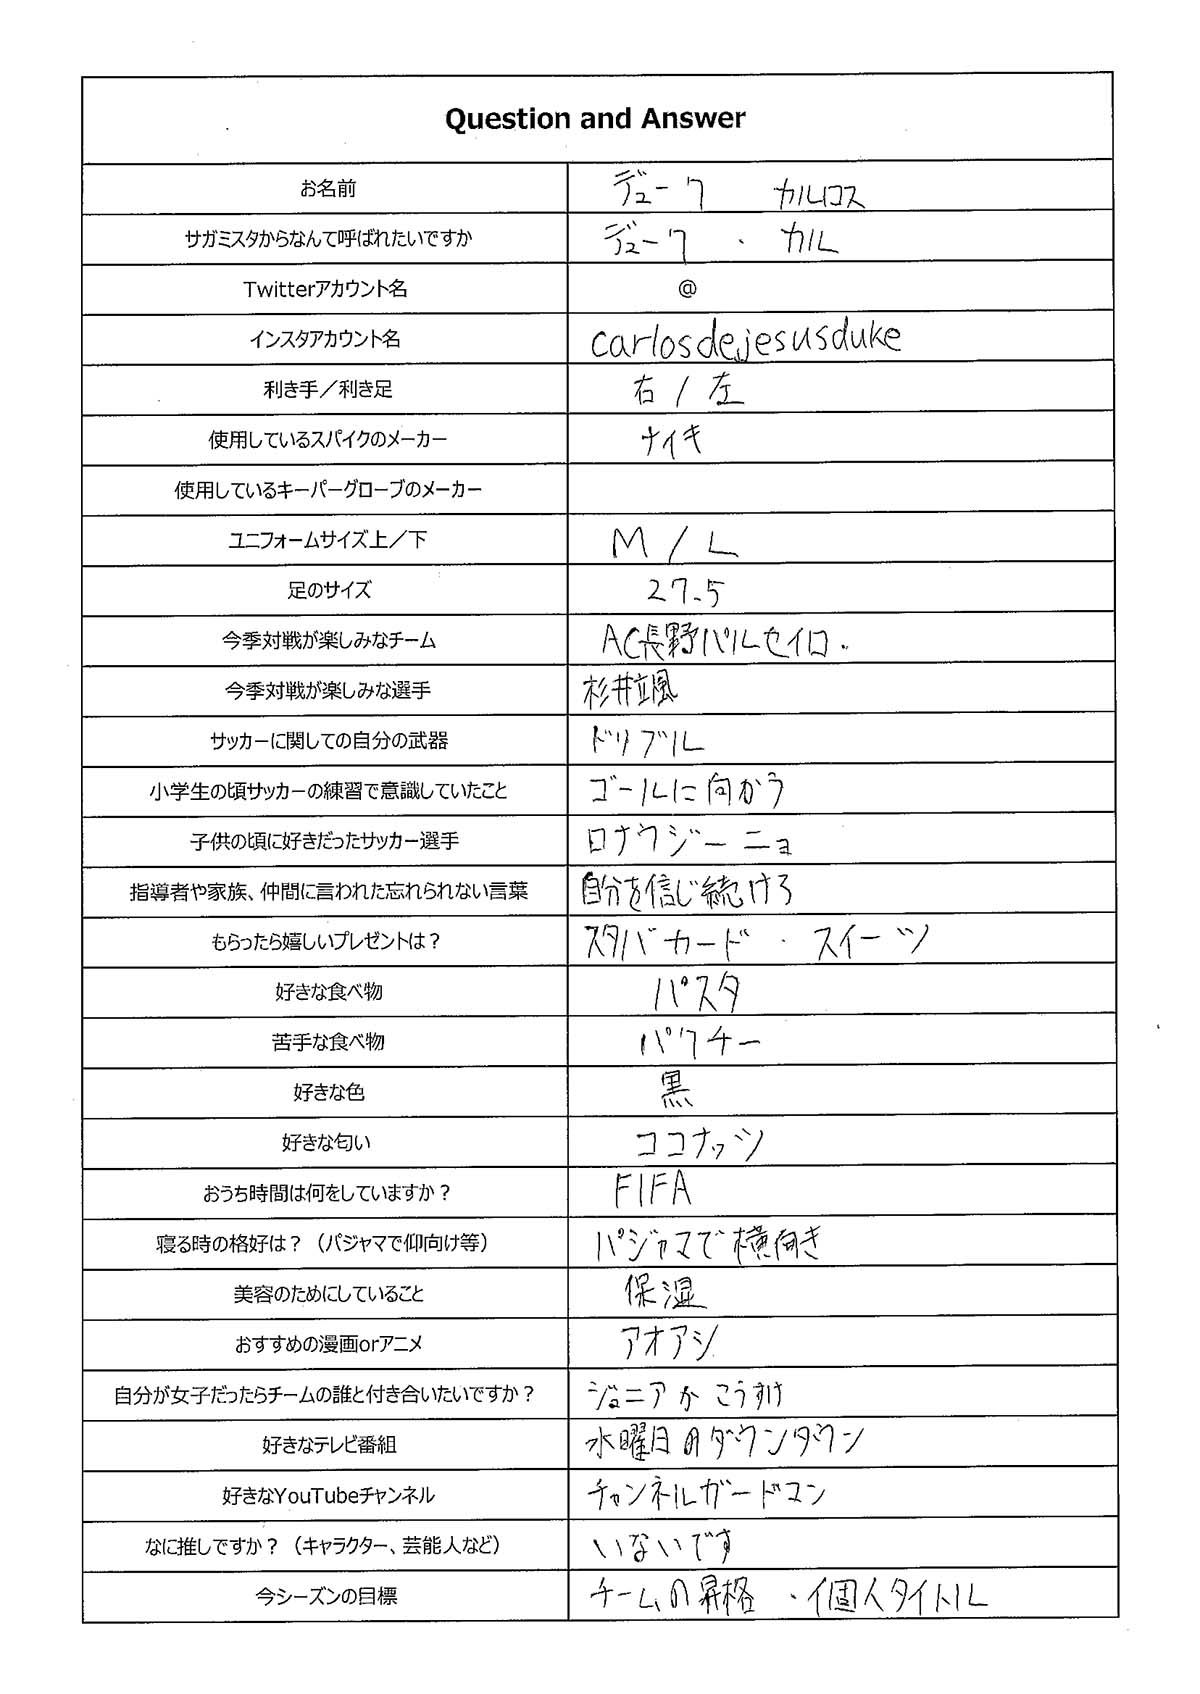 Question and Answer
お名前 デューク カルロス
サガミスタからなんて呼ばれたいですか デューク ・ カル
Twitterアカウント名 @
インスタアカウント名 carlosdejesusduke
利き手／利き足 右 / 左
使用しているスパイクのメーカー ナイキ
使用しているキーパーグローブのメーカー
ユニフォームサイズ上／下 M / L
足のサイズ 27.5
今季対戦が楽しみなチーム AC長野パルセイロ.
今季対戦が楽しみな選手 杉井颯
サッカーに関しての自分の武器 ドリブル
小学生の頃サッカーの練習で意識していたこと ゴールに向かう
子供の頃に好きだったサッカー選手 ロナウジーニョ
指導者や家族、仲間に言われた忘れられない言葉 自分を信じ続けろ
もらったら嬉しいプレゼントは？ スタバカード ・ スイーツ
好きな食べ物 パスタ
苦手な食べ物 パクチー
好きな色 黒
好きな匂い ココナッツ
おうち時間は何をしていますか？ FIFA
寝る時の格好は？（パジャマで仰向け等） パジャマで横向き
美容のためにしていること 保湿
おすすめの漫画orアニメ アオアシ
自分が女子だったらチームの誰と付き合いたいですか？ ジュニアか こうすけ
好きなテレビ番組 水曜日のダウンタウン
好きなYouTubeチャンネル チャンネルガードマン
なに推しですか？（キャラクター、芸能人など） いないです
今シーズンの目標 チームの昇格 ・個人タイトル